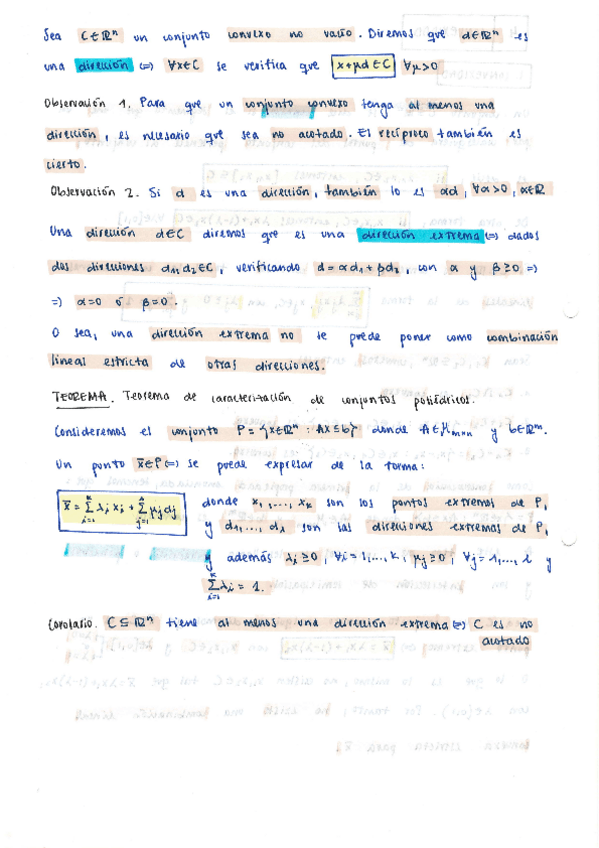 Sea C∈ℝⁿ un conjunto convexo no vacío. Diremos que d∈ℝⁿ es
una dirección ⇔ ∀x∈C se verifica que x+μd∈C ∀μ>0
Observación 1. Para que un conjunto convexo tenga al menos una
dirección, es necesario que sea no acotado. El recíproco también es
cierto.
Observación 2. Si d es una dirección, también lo es αd, ∀α>0, α∈ℝ
Una dirección d∈C diremos que es una dirección extrema ⇔ dados
dos direcciones d₁, d₂∈C, verificando d = αd₁ + βd₂, con α y β≥0 ⇒
⇒ α=0 ó β=0.
O sea, una dirección extrema no se puede poner como combinación
lineal estricta de otras direcciones.
TEOREMA. Teorema de caracterización de conjuntos poliédricos.
Consideremos el conjunto P = {x∈ℝⁿ : Ax≤b} donde A∈M m×n y b∈ℝᵐ.
Un punto x̄∈P ⇔ se puede expresar de la forma:
x̄ = Σ λᵢ xᵢ + Σ μⱼ dⱼ donde x₁, ..., xₖ son los puntos extremos de P,
y d₁, ..., d son las direcciones extremas de P,
y además λᵢ ≥0, ∀i=1,...,k, μⱼ ≥0, ∀j=1,..., y
Σ λᵢ = 1.
Corolario. C⊆ℝⁿ tiene al menos una dirección extrema ⇔ C es no
acotado